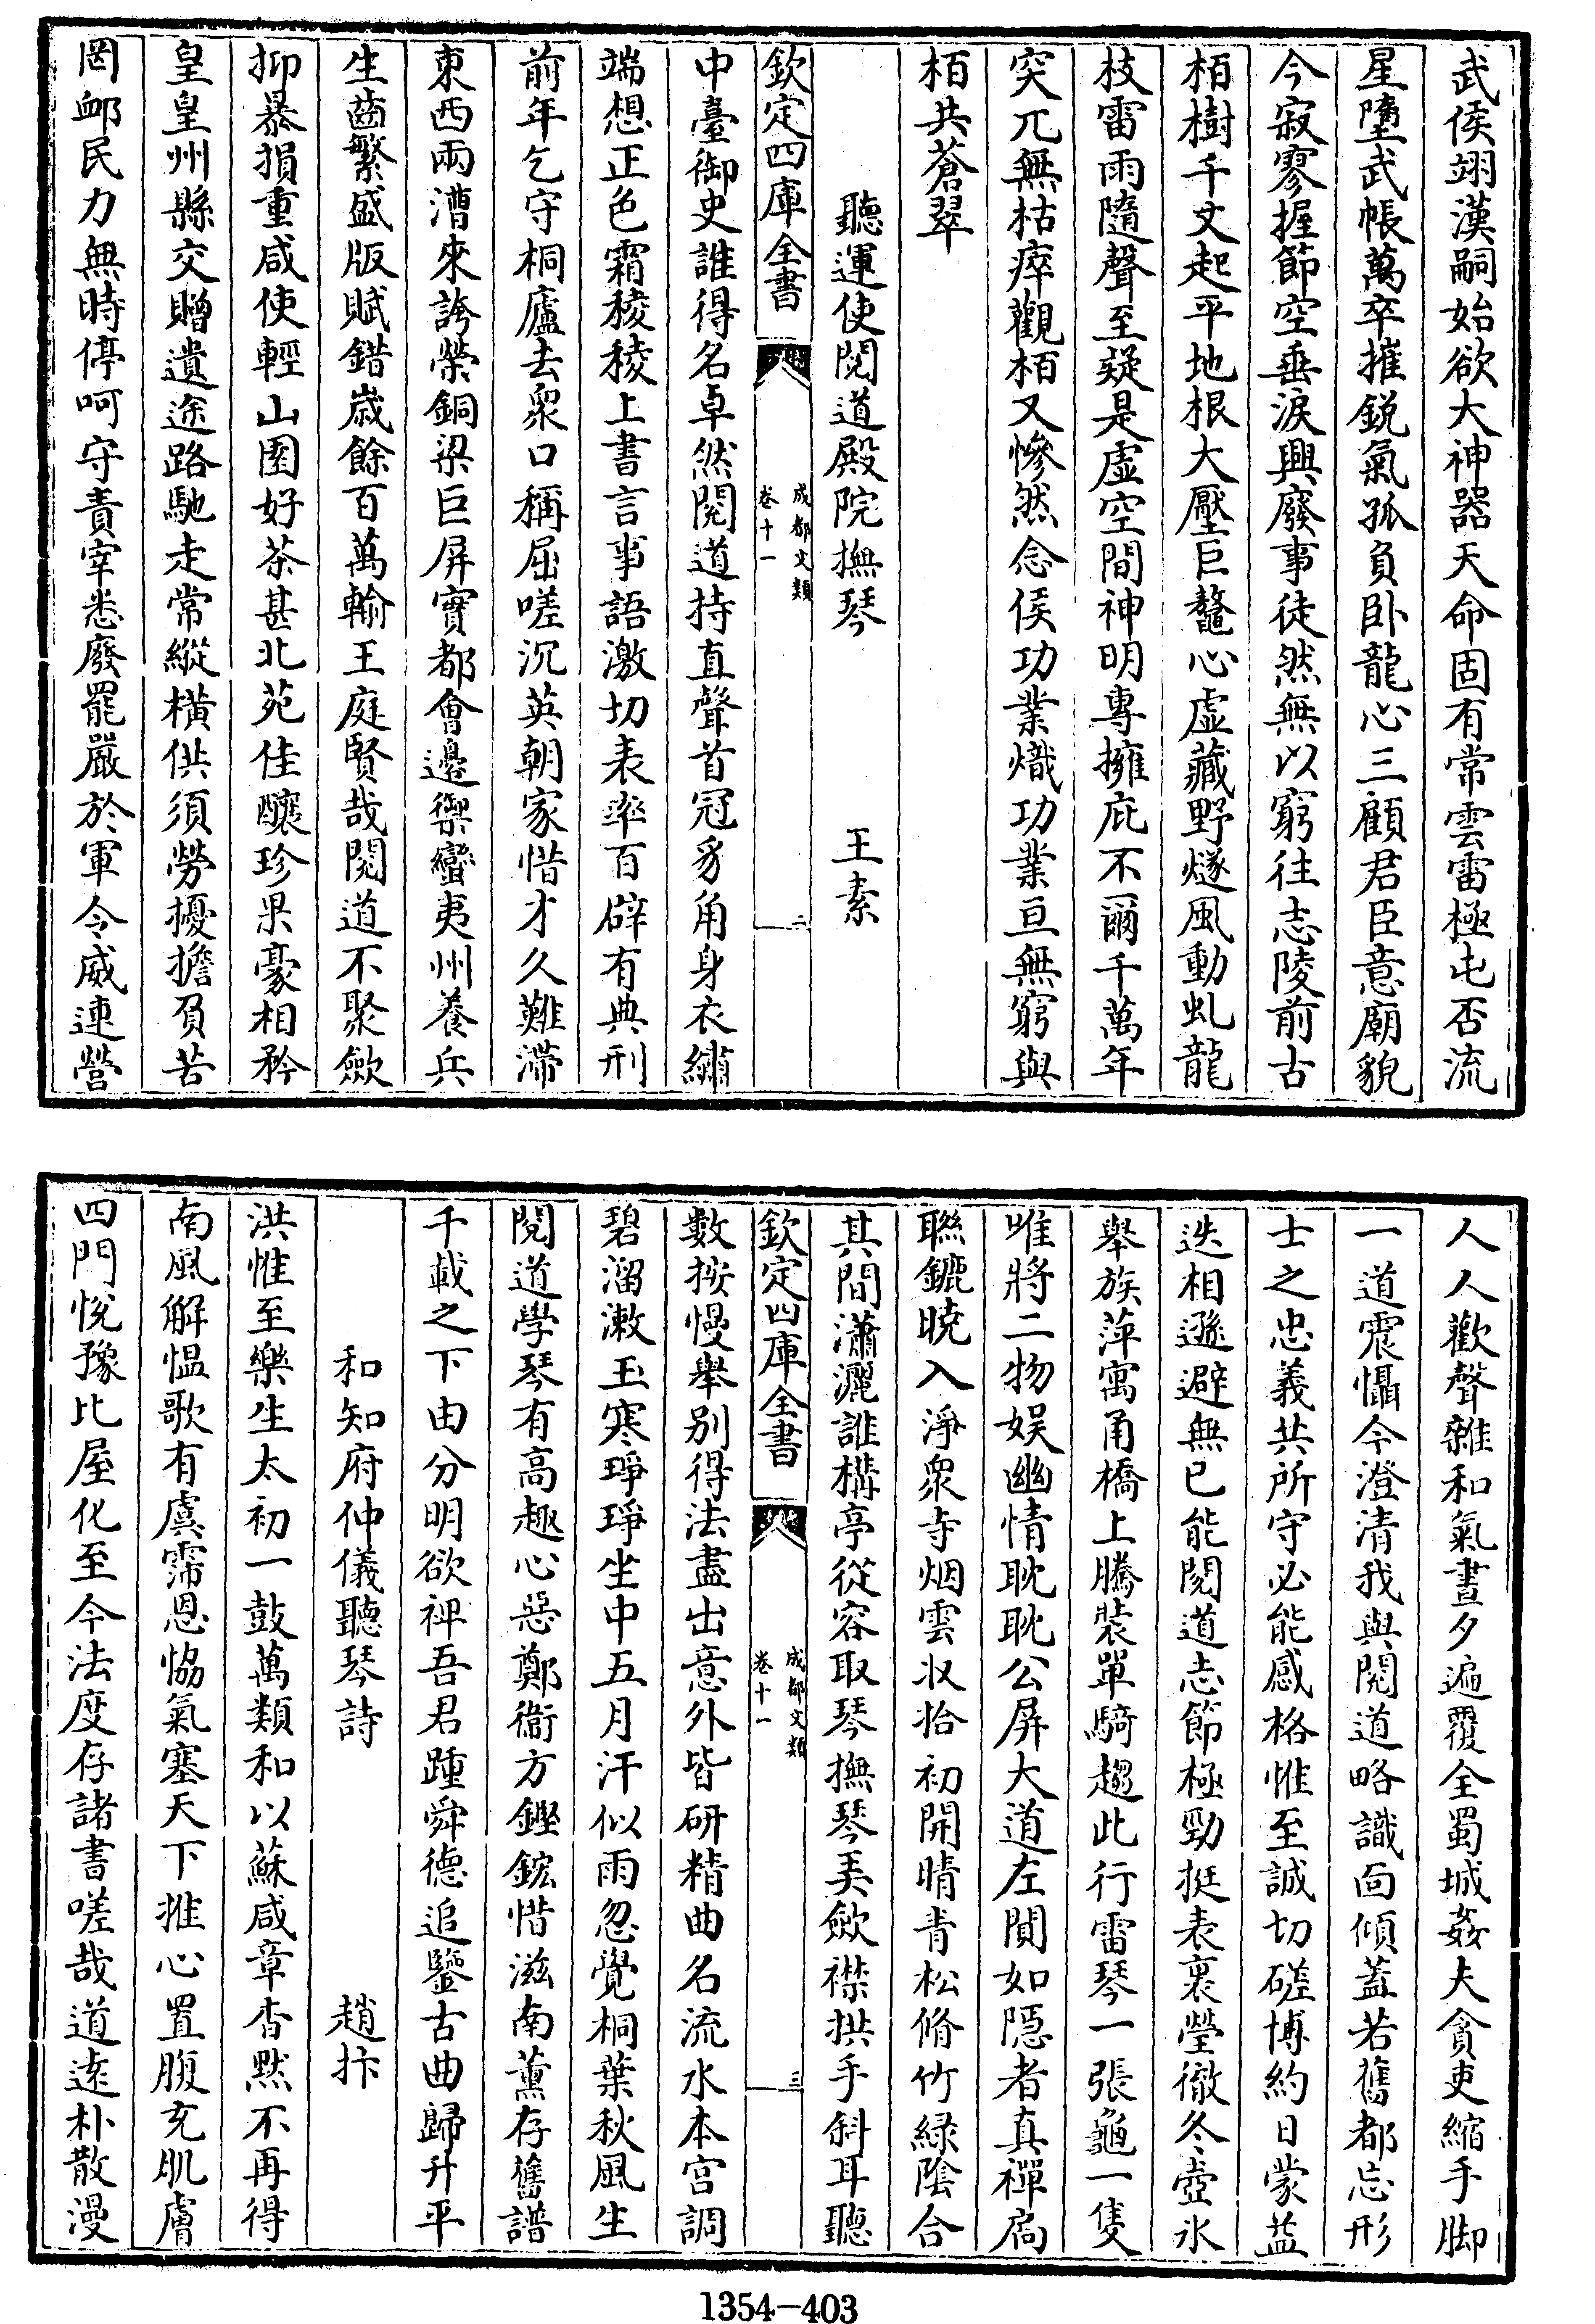 武侯翊漢嗣始欲大神器天命固有常雲雷極屯否流
星墮武帳萬卒摧鋭氣孤負卧龍心三顧君臣意廟貌
今寂寥握節空垂淚興廢事徒然無以窮徃志陵前古
栢樹千丈起平地根大壓巨鼇心虚藏野燧風動虬龍
枝雷雨隨聲至疑是虚空間神明專擁庇不爾千萬年
突兀無枯瘁觀栢又慘然念侯功業熾功業亘無窮與
栢共蒼翠
聽運使閲道殿院撫琴 王素
欽定四庫全書 成都文類 卷十一 二
中臺御史誰得名卓然閲道持直聲首冠豸角身衣繡
端想正色霜稜稜上書言事語激切表率百辟有典刑
前年乞守桐廬去衆口稱屈嗟沉英朝家惜才久難滯
東西兩漕來誇榮銅梁巨屏實都會邊禦蠻夷州養兵
生齒繁盛版賦錯嵗餘百萬輸王庭賢哉閲道不聚斂
抑暴損重咸使輕山園好茶甚北苑佳釀珍果豪相矜
皇皇州縣交贈遺途路馳走常縱橫供須勞擾擔負苦
罔邺民力無時停呵守責宰悉廢罷嚴於軍令威連營
人人歡聲雜和氣晝夕遍覆全蜀城姦夫貪吏縮手脚
一道震懾今澄清我與閲道略識面傾蓋若舊都忘形
士之忠義共所守必能感格惟至誠切磋博約日蒙益
迭相遜避無已能閲道志節極勁挺表裏瑩徹冬壺氷
舉族萍寓甬橋上騰裝單騎趨此行雷琴一張龜一隻
唯將二物娱幽情耽耽公屏大道左閴如隠者真禪扃
聯鑣曉入淨衆寺烟雲収拾初開晴青松脩竹緑陰合
其間瀟灑誰構亭從容取琴撫琴美斂襟拱手斜耳聽
欽定四庫全書 成都文類 卷十一 三
數按慢舉别得法盡出意外皆研精曲名流水本宫調
碧溜漱玉寒琤琤坐中五月汗似雨忽覺桐葉秋風生
閲道學琴有高趣心惡鄭衞方鏗鋐惜滋南薫存舊譜
千載之下由分明欲裨吾君踵舜德追鑒古曲歸升平
和知府仲儀聽琴詩 趙抃
洪惟至樂生太初一鼓萬類和以蘇咸章杳默不再得
南風解愠歌有虞霈恩恊氣塞天下推心置腹充肌膚
四門悅豫比屋化至今法度存諸書嗟哉道逺朴散漫
1354—403